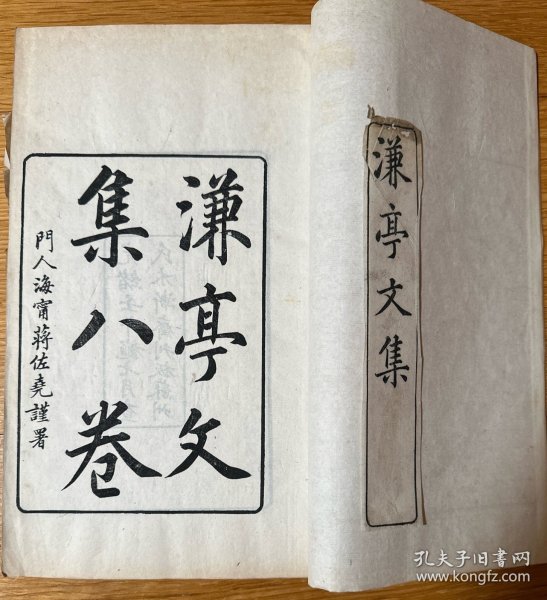 濂亭文集
濂亭文
集八卷
門人海甯蔣佐堯謹署
孔夫子旧书网
www.kongfz.com